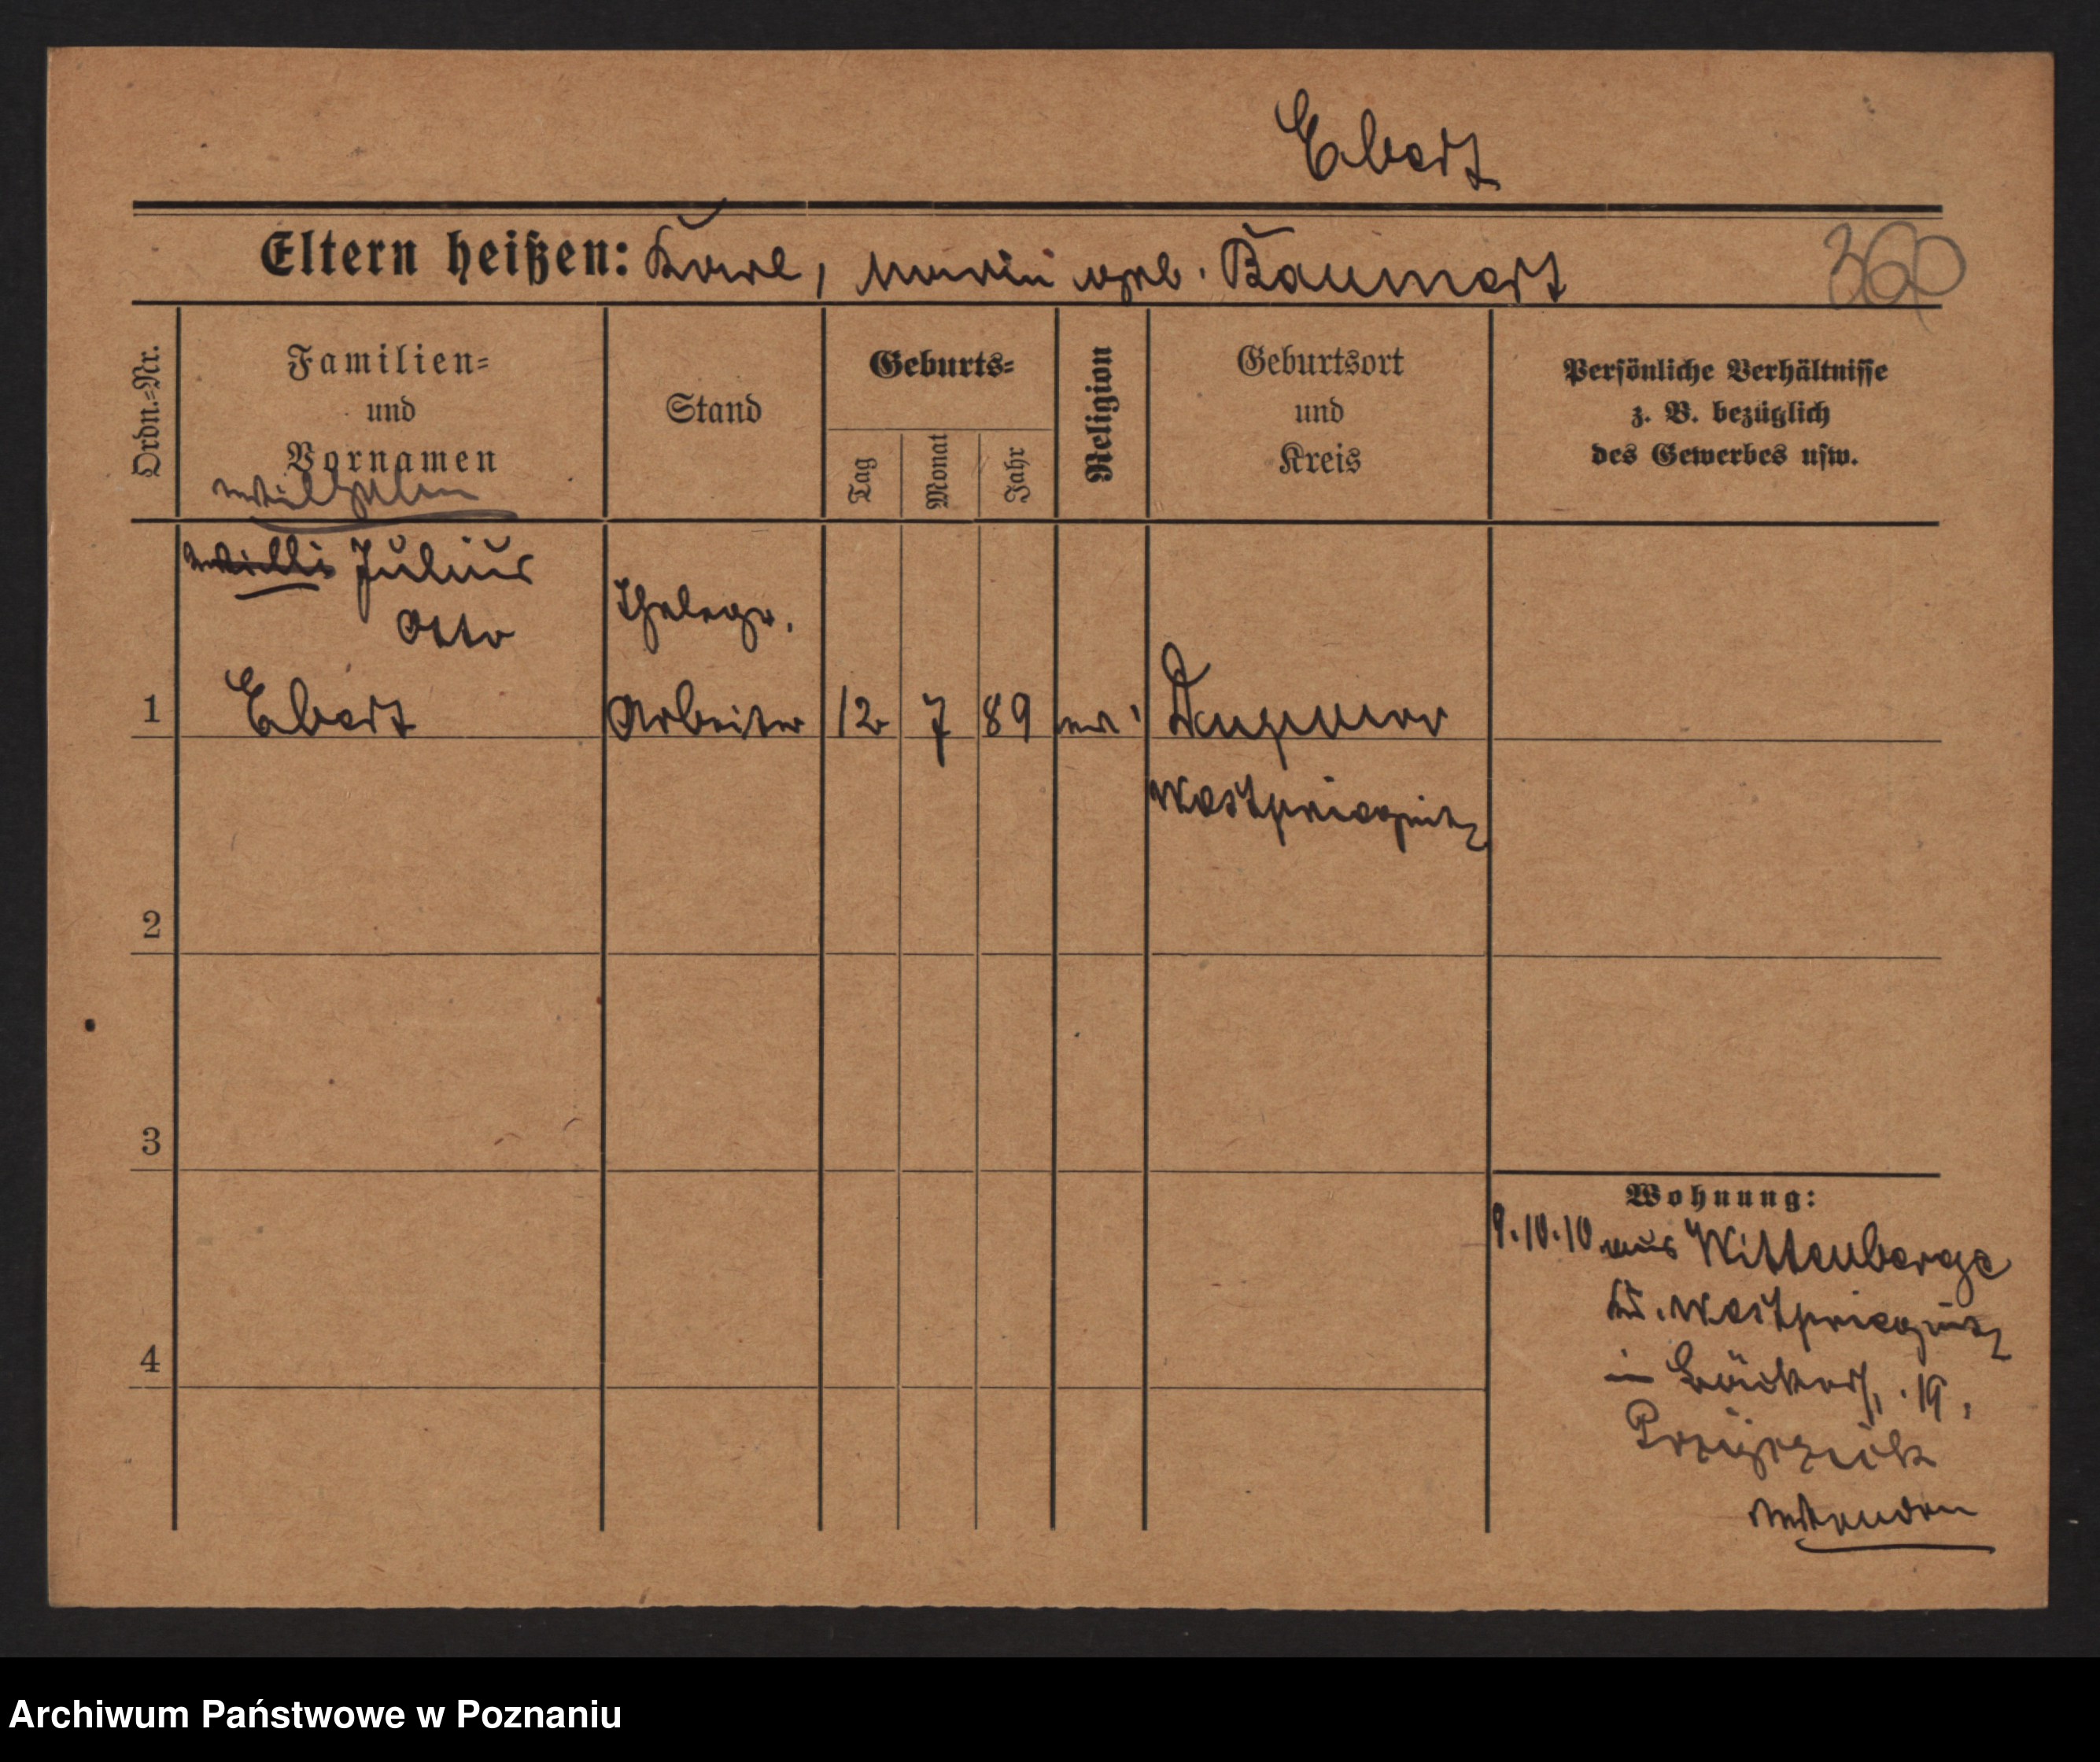 Ebert
Eltern heißen: Karl, Marie geb. Baumert
360
Ordn.-Nr.
Familien-
und
Vornamen
Stand
Geburts-
Tag
Monat
Jahr
Religion
Geburtsort
und
Kreis
Persönliche Verhältnisse
z. B. bezüglich
des Gewerbes usw.
Wilhelm
Willi Julius
Otto
Thelegr.
1 Ebert Arbeiter 12 7 89 ev.
Westpriegnitz
2
3
4
Wohnung:
9.10.10 aus Wittenberge
Kr. Westpriegnitz
in Bäckerstr. 19,
Archiwum Państwowe w Poznaniu